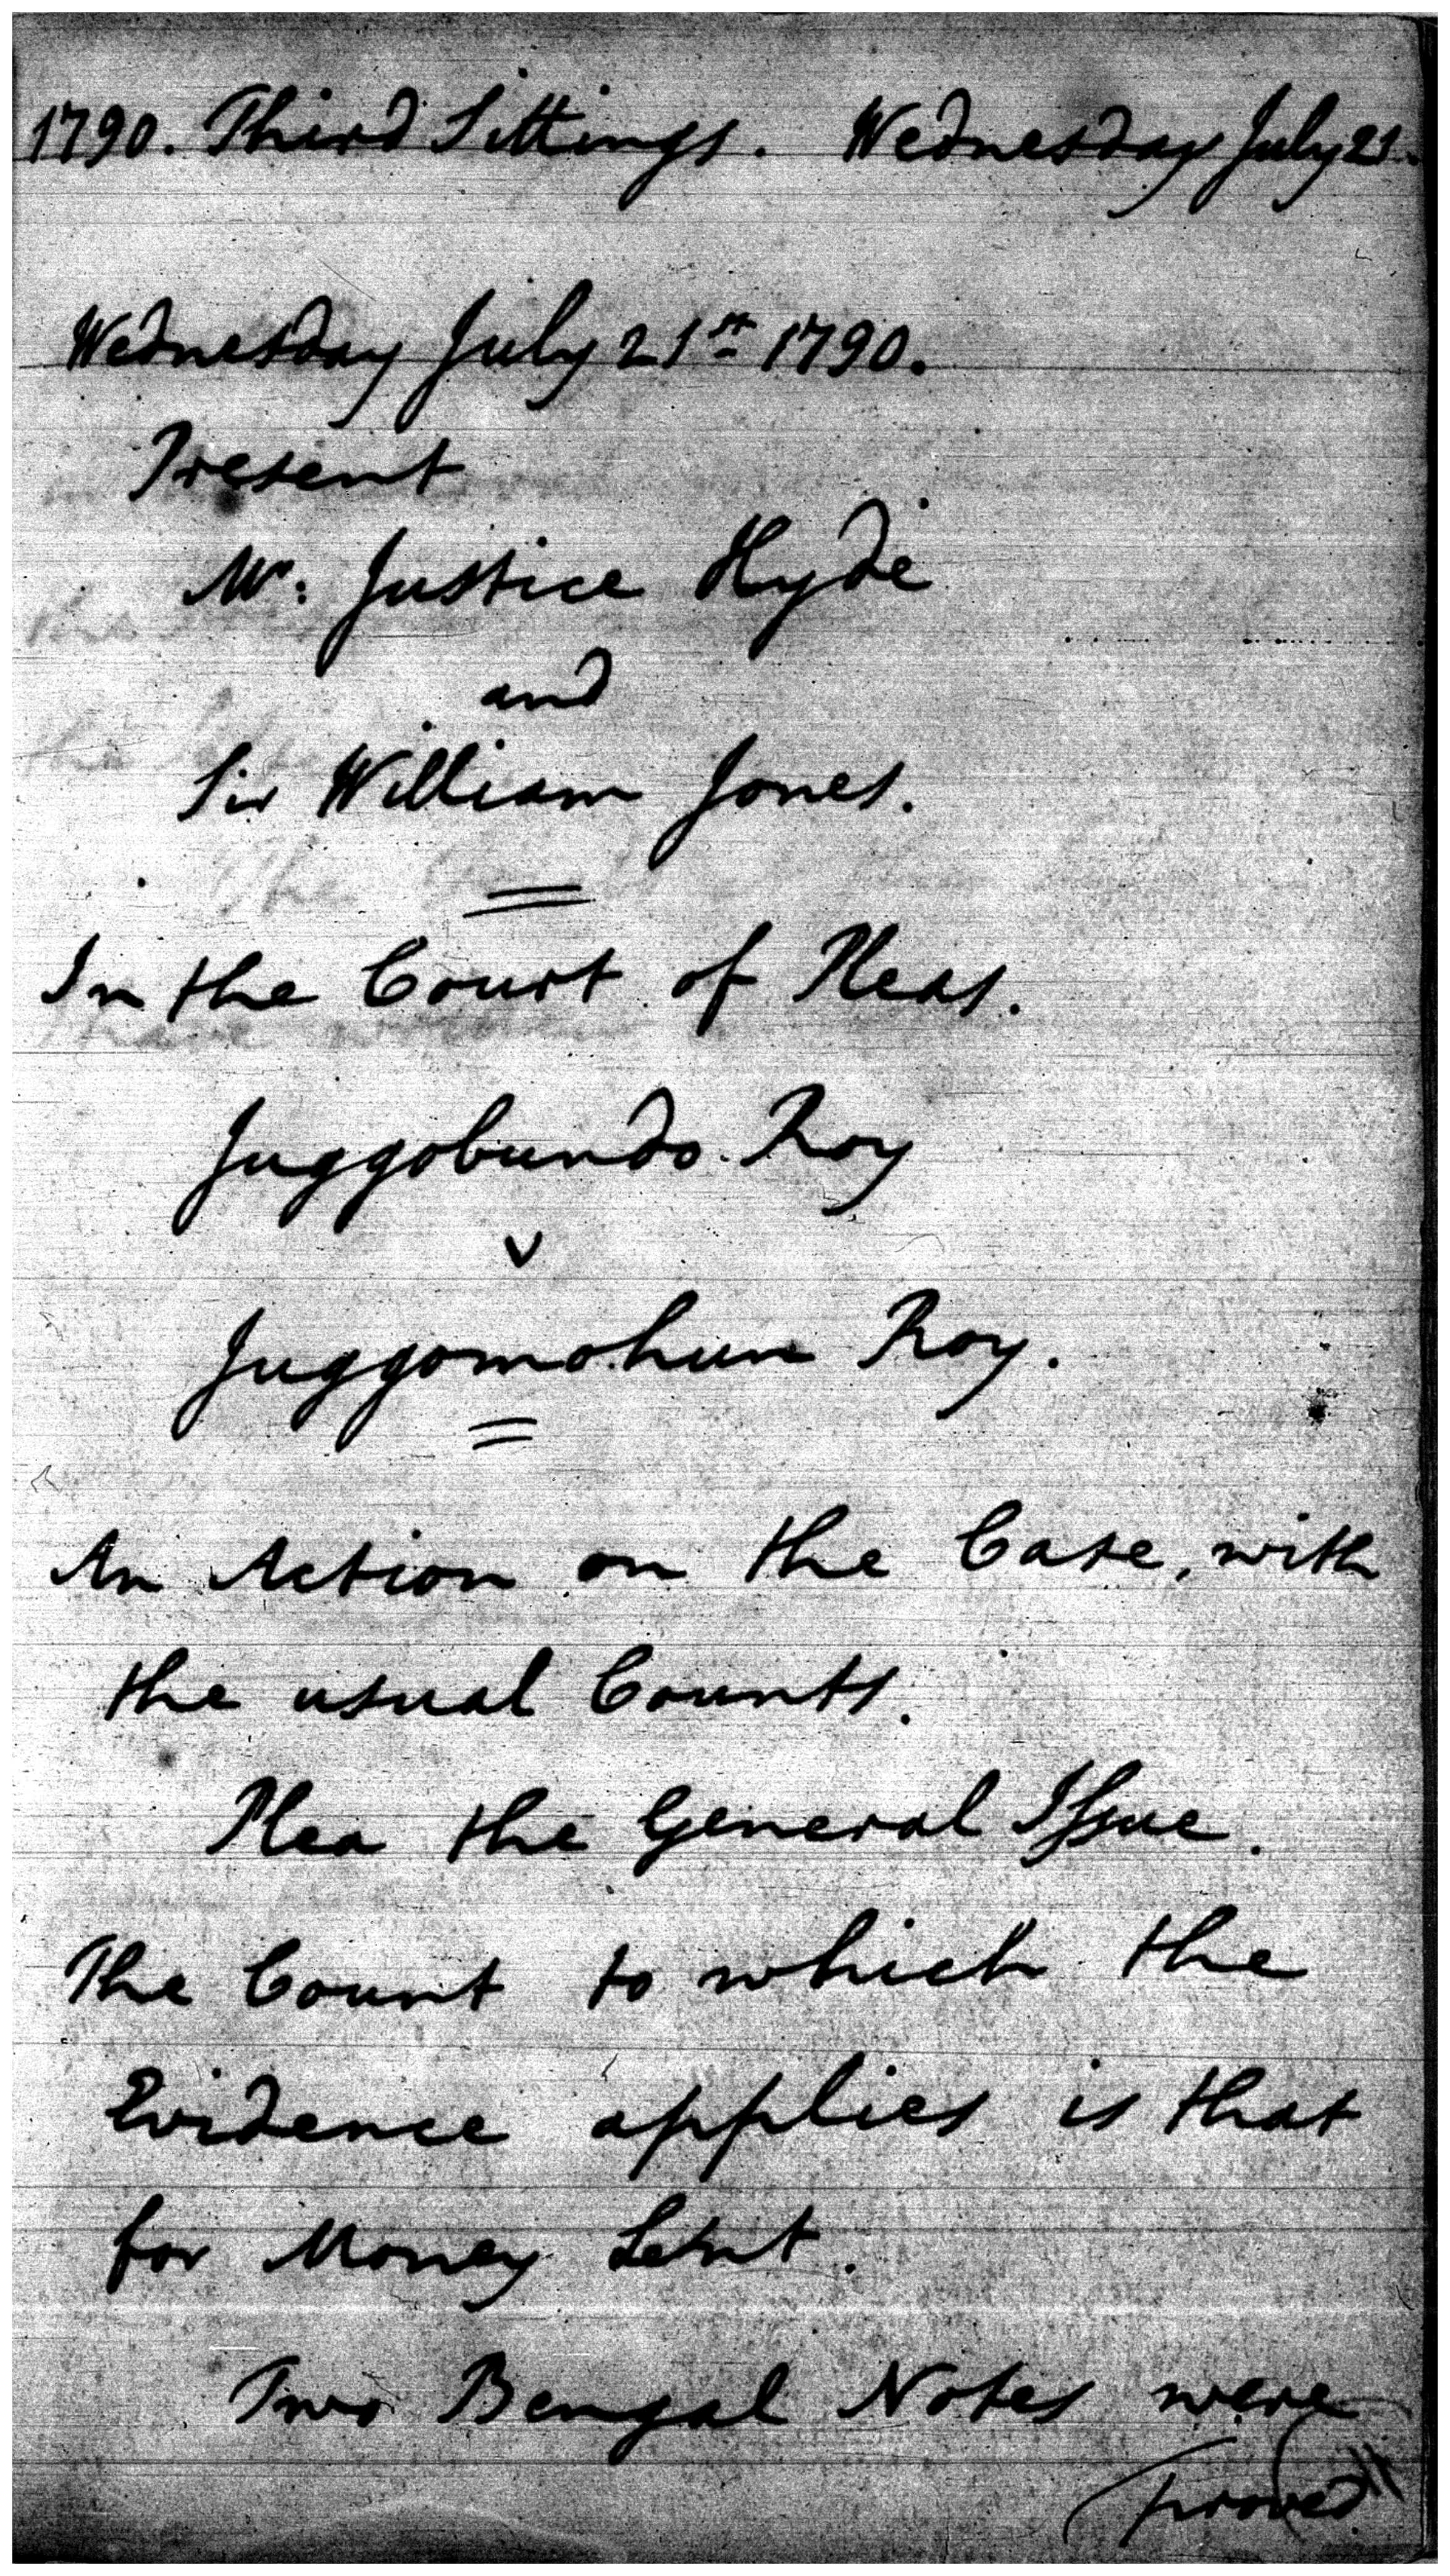 1790. Third Sittings. Wednesday July 21.
Wednesday July 21st 1790.
Present
Mr. Justice Hyde
and
Sir William Jones.
In the Court of Pleas.
Juggobundo Roy
v
Juggomohun Roy.
An Action on the Case, with
the usual Counts.
Plea the General Issue.
The Count to which the
Evidence applies is that
for Money Lent.
Two Bengal Notes were
(proved